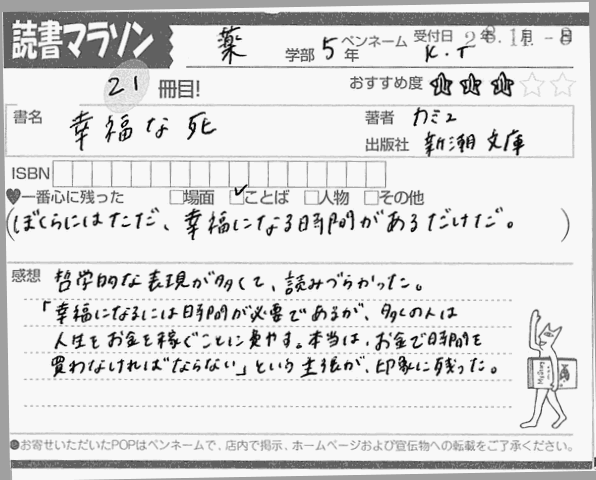 読書マラソン
薬 学部 5年 ペンネーム K.T 受付日 2 年 11月 -8日
21 冊目!
おすすめ度 ★★★☆☆
書名 幸福な死
著者 カミュ
出版社 新潮文庫
ISBN
♥一番心に残った □場面 ☑ことば □人物 □その他
(ぼくらにはただ、幸福になる時間があるだけだ。)
感想 哲学的な表現が多くて、読みづらかった。
「幸福になるには時間が必要であるが、多くの人は
人生をお金を稼ぐことに費やす。本当は、お金で時間を
買わなければならない」という主張が、印象に残った。
●お寄せいただいたPOPはペンネームで、店内で掲示、ホームページおよび宣伝物への転載をご了承ください。